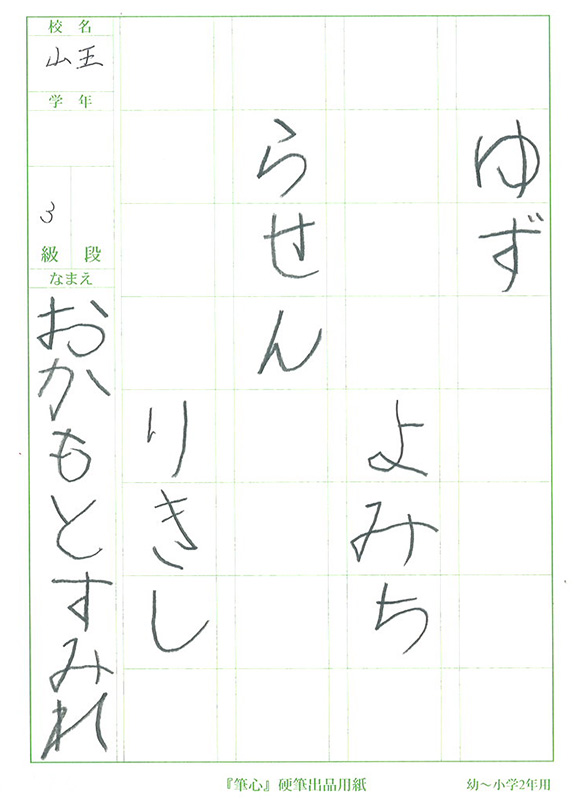 ゆず
よみち
らせん
りきし
校名
山王
学年
3
級 段
なまえ
おかもとすみれ
『筆心』硬筆出品用紙
幼〜小学2年用